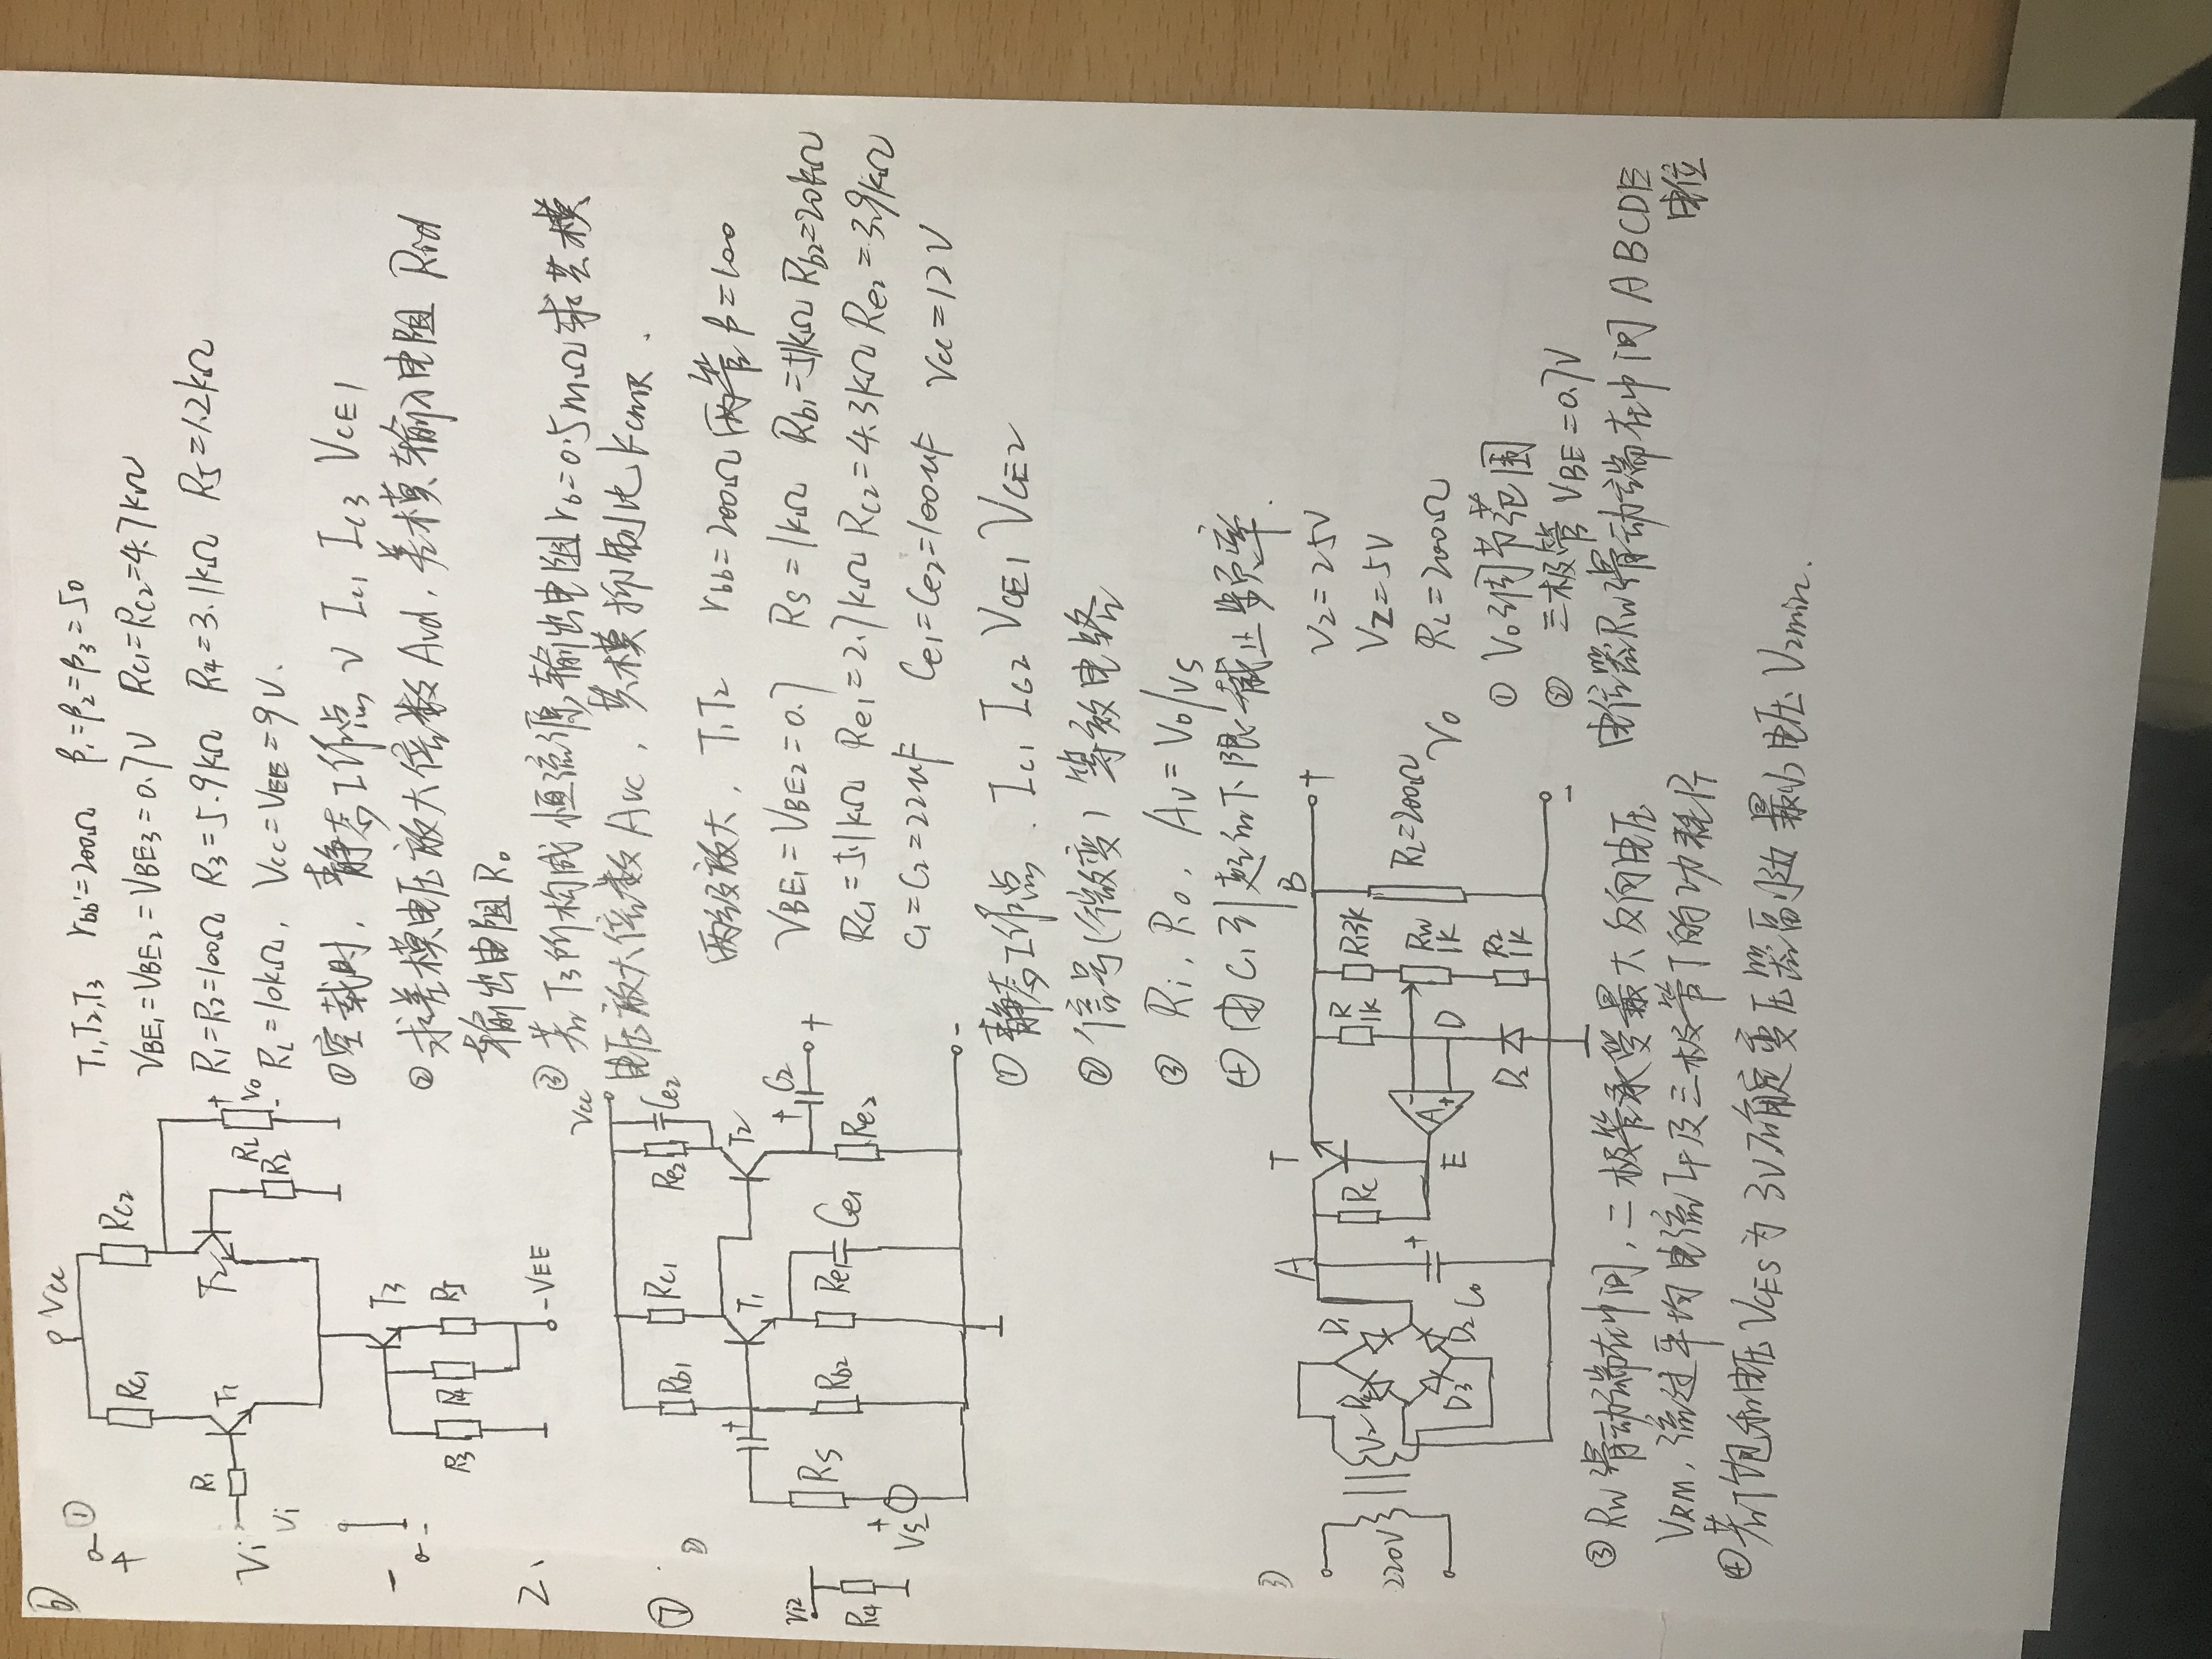 ⑥
①
Vcc
Rc1
Rc2
R1
T1
T2
R2
RL
+
Vo
-
Vi
Vi
T3
R3
R4
R5
-VEE
T1,T2,T3 rbb'=200Ω β1=β2=β3=50
VBE1=VBE2=VBE3=0.7V Rc1=Rc2=4.7kΩ
R1=R2=100Ω R3=5.9kΩ R4=3.1kΩ R5=1.2kΩ
RL=10kΩ, Vcc=VEE=9V.
①空载时,静态工作点 Ic1 Ic3 VCE1
②求差模电压放大倍数Avd,差模输入电阻 Rid
输出电阻Ro
③若T3所构成恒流源输出电阻ro=0.5mΩ求共模
电压放大倍数Avc,共模抑制比KCMR.
2、
⑦
Vcc
Rb1
Rc1
Re2
Ce2
T1
T2
C2
+
Rs
Rb2
Re1
Ce1
Re2
Vs
-
Vi2
R4
两级放大,T1T2 rbb=200Ω两管β=100
VBE1=VBE2=0.7 Rs=1kΩ Rb1=51kΩ Rb2=20kΩ
Rc1=5.1kΩ Re1=2.7kΩ Rc2=4.3kΩ Re2=3.9kΩ
C1=C2=22uF Ce1=Ce2=100uF Vcc=12V
①静态工作点.Ic1 Ic2 VCE1 VCE2
②信号(微变)等效电路
③ Ri, Ro, Av=Vo/Vs
④由C1引起的下限截止频率.
3)
A
T
B
+
220V
V2
D1
D2
D3
D4
Co
Rc
E
A
D
R
1K
R1 3K
Rw
1K
R2
1K
Dz
RL=200Ω
Vo
-
V2=25V
VZ=5V
RL=200Ω
① Vo调节范围
② 三极管VBE=0.7V
电位器Rw滑动端在中间 ABCDE
电位
③Rw滑动端在中间,二极管承受最大反向电压
VRM,流过平均电流IF及三极管T的功耗PT
④若T饱和电压VCES为3V确定变压器副边最小电压V2min.